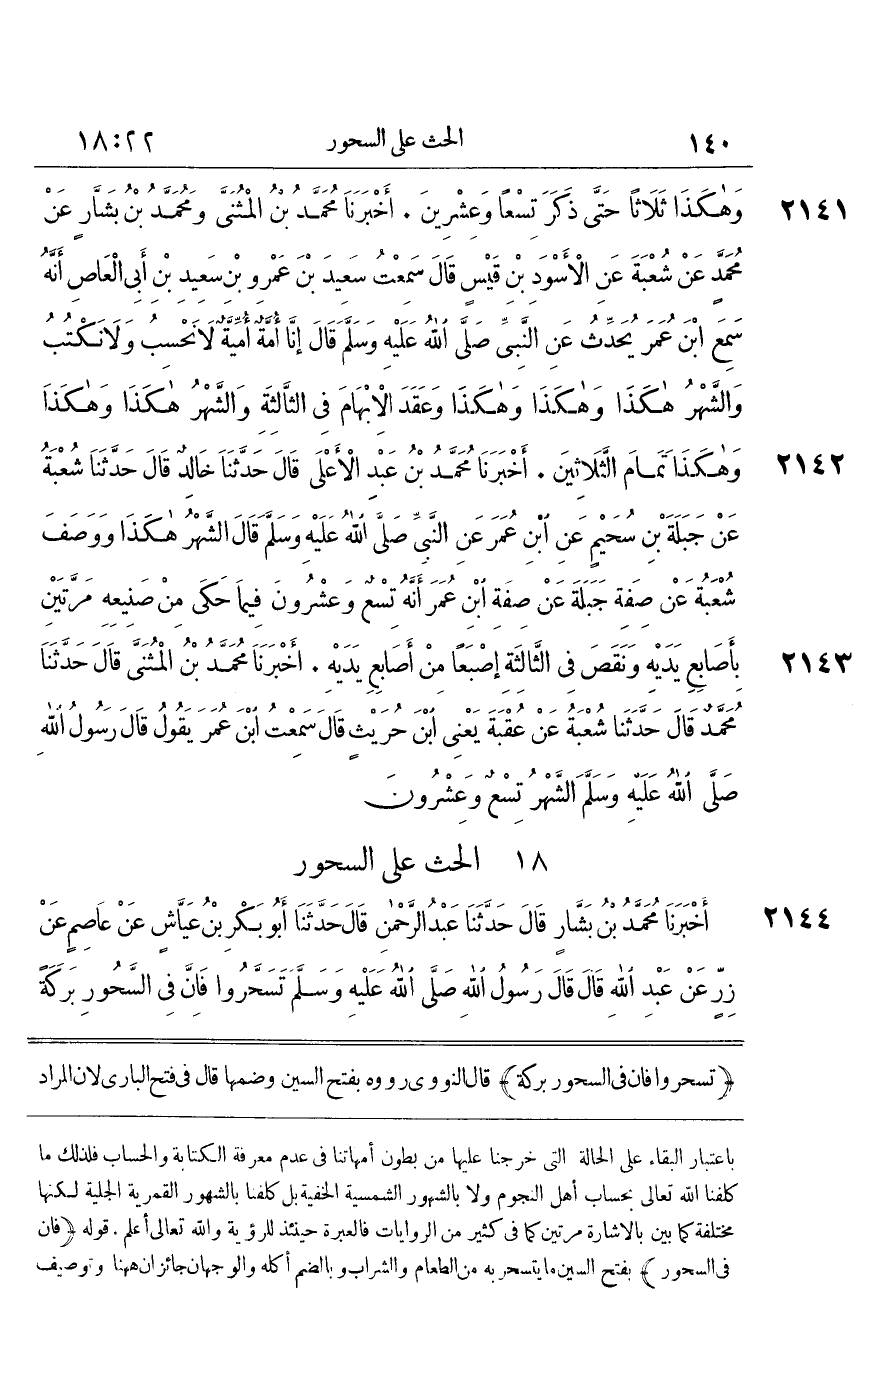 ١٤٠ الحث على السحور ١٨:٢٢
٢١٤١ وَهٰكَذَا ثَلَاثًا حَتَّى ذَكَرَ تِسْعًا وَعِشْرِينَ . أَخْبَرَنَا مُحَمَّدُ بْنُ الْمُثَنَّى وَمُحَمَّدُ بْنُ بَشَّارٍ عَنْ
مُحَمَّدٍ عَنْ شُعْبَةَ عَنِ الْأَسْوَدِ بْنِ قَيْسٍ قَالَ سَمِعْتُ سَعِيدَ بْنَ عَمْرِو بْنِ سَعِيدِ بْنِ أَبِى الْعَاصِ أَنَّهُ
سَمِعَ ابْنَ عُمَرَ يُحَدِّثُ عَنِ النَّبِىِّ صَلَّى اللهُ عَلَيْهِ وَسَلَّمَ قَالَ إِنَّا أُمَّةٌ أُمِّيَّةٌ لَا نَحْسِبُ وَلَا نَكْتُبُ
وَالشَّهْرُ هٰكَذَا وَهٰكَذَا وَهٰكَذَا وَعَقَدَ الْإِبْهَامَ فِى الثَّالِثَةِ وَالشَّهْرُ هٰكَذَا وَهٰكَذَا
٢١٤٢ وَهٰكَذَا تَمَامَ الثَّلَاثِينَ . أَخْبَرَنَا مُحَمَّدُ بْنُ عَبْدِ الْأَعْلَى قَالَ حَدَّثَنَا خَالِدٌ قَالَ حَدَّثَنَا شُعْبَةُ
عَنْ جَبَلَةَ بْنِ سُحَيْمٍ عَنِ ابْنِ عُمَرَ عَنِ النَّبِىِّ صَلَّى اللهُ عَلَيْهِ وَسَلَّمَ قَالَ الشَّهْرُ هٰكَذَا وَوَصَفَ
شُعْبَةُ عَنْ صِفَةِ جَبَلَةَ عَنْ صِفَةِ ابْنِ عُمَرَ أَنَّهُ تِسْعٌ وَعِشْرُونَ فِيمَا حَكَى مِنْ صَنِيعِهِ مَرَّتَيْنِ
٢١٤٣ بِأَصَابِعِ يَدَيْهِ وَنَقَصَ فِى الثَّالِثَةِ إِصْبَعًا مِنْ أَصَابِعِ يَدَيْهِ . أَخْبَرَنَا مُحَمَّدُ بْنُ الْمُثَنَّى قَالَ حَدَّثَنَا
مُحَمَّدٌ قَالَ حَدَّثَنَا شُعْبَةُ عَنْ عُقْبَةَ يَعْنِى ابْنَ حُرَيْثٍ قَالَ سَمِعْتُ ابْنَ عُمَرَ يَقُولُ قَالَ رَسُولُ اللهِ
صَلَّى اللهُ عَلَيْهِ وَسَلَّمَ الشَّهْرُ تِسْعٌ وَعِشْرُونَ
١٨ الحث على السحور
٢١٤٤ أَخْبَرَنَا مُحَمَّدُ بْنُ بَشَّارٍ قَالَ حَدَّثَنَا عَبْدُ الرَّحْمٰنِ قَالَ حَدَّثَنَا أَبُو بَكْرِ بْنُ عَيَّاشٍ عَنْ عَاصِمٍ عَنْ
زِرٍّ عَنْ عَبْدِ اللهِ قَالَ قَالَ رَسُولُ اللهِ صَلَّى اللهُ عَلَيْهِ وَسَلَّمَ تَسَحَّرُوا فَإِنَّ فِى السَّحُورِ بَرَكَةً
﴿ تسحروا فان فى السحور بركة ﴾ قال النووى رووه بفتح السين وضمها قال فى فتح البارى لان المراد
باعتبار البقاء على الحالة التى خرجنا عليها من بطون أمهاتنا فى عدم معرفة الكتابة والحساب فلذلك ما
كلفنا الله تعالى بحساب أهل النجوم ولا بالشهور الشمسية الخفية بل كلفنا بالشهور القمرية الجلية لكنها
مختلفة كما بين بالاشارة مرتين كما فى كثير من الروايات فالعبرة حينئذ للرؤية والله تعالى أعلم . قوله ﴿ فان
فى السحور ﴾ بفتح السين ما يتسحر به من الطعام والشراب وبالضم أكله والوجهان جائزان ههنا وتوصيف